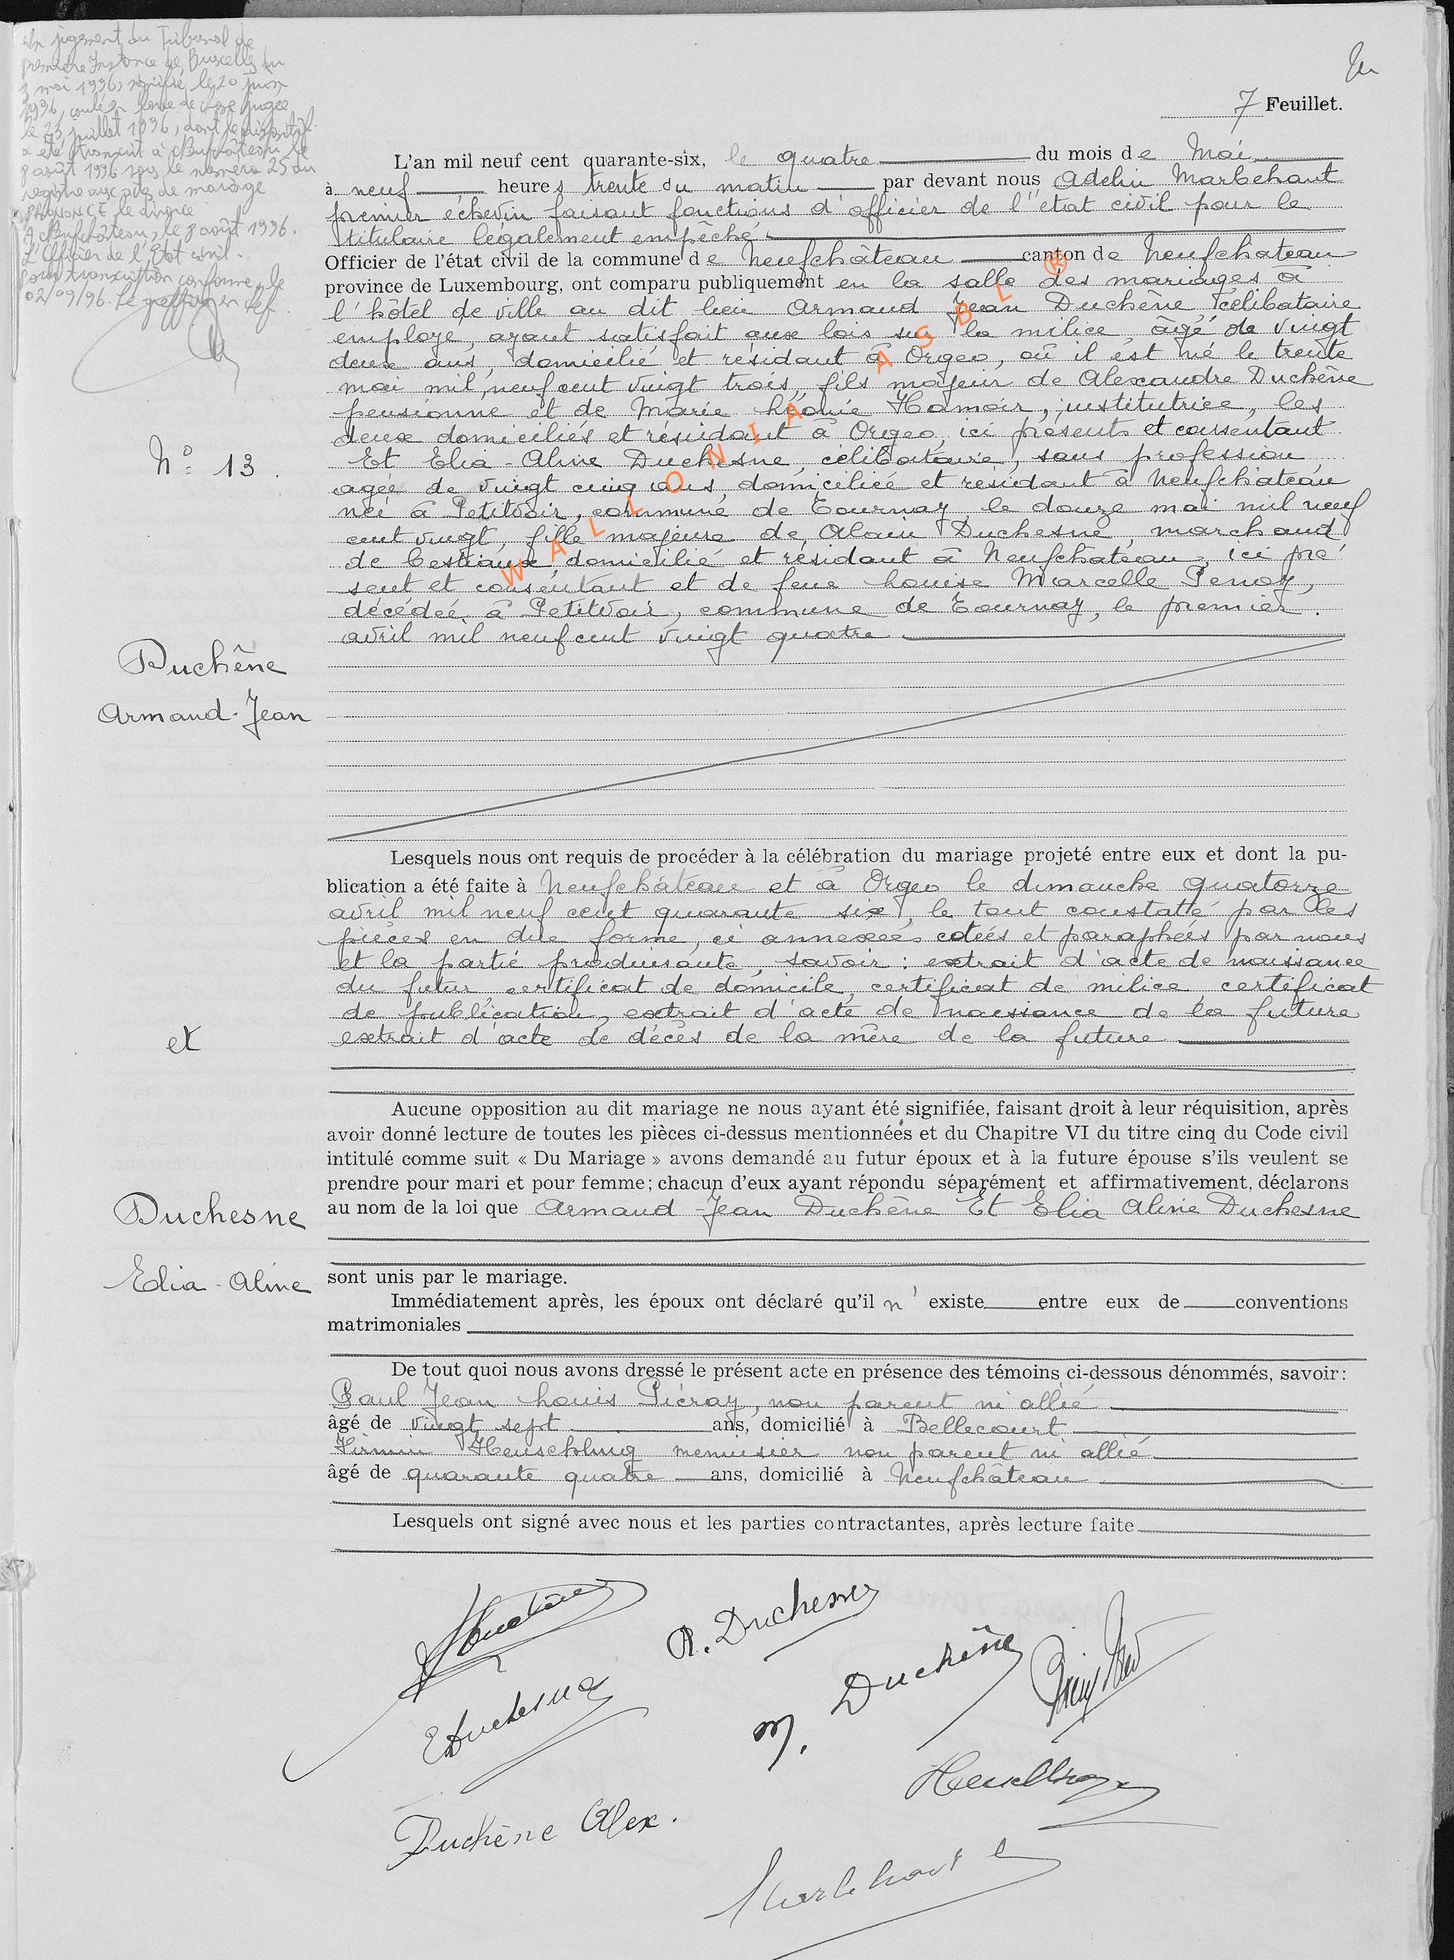 Un jugement du Tribunal de
première Instance de Bruxelles du
mai 1996, signifié le 20 juin
1996, coulé en force de chose jugée
le 23 juillet 1996, dont le dispositif
a été transcrit à Neufchâteau le
8 août 1996 sous le numéro 25 du
registre aux actes de mariage
PRONONCE le divorce
A Neufchâteau, le 8 août 1996.
L'Officier de l'Etat civil.
Pour transcription conforme, le
02/09/96. Le greffier en chef.
7 Feuillet.
L'an mil neuf cent quarante-six, le quatre du mois de Mai
à neuf heures trente du matin par devant nous Adelin Marbehant
premier échevin faisant fonctions d'officier de l'état civil pour le
titulaire légalement empêché
Officier de l'état civil de la commune de Neufchâteau canton de Neufchateau
province de Luxembourg, ont comparu publiquement en la salle des mariages à
l'hôtel de ville au dit lieu Armand Jean Duchêne, célibataire
employe, ayant satisfait aux lois sur la milice, âgé de vingt
deux ans, domicilié et résidant à Orgeo, où il est né le trente
mai mil neuf cent vingt trois, fils majeur de Alexandre Duchêne
pensionne et de Marie Léonie Hamoir, institutrice, les
deux domiciliés et résidant à Orgeo, ici présents et consentant
Et Elia-Aline Duchesne, célibataire, sans profession,
agée de vingt cinq ans, domiciliée et résidant à Neufchâteau
née à Petitvoir, commune de Tournay le douze mai mil neuf
cent vingt, fille majeure de Alain Duchesne, marchand
de bestiaux domicilié et résidant à Neufchateau, ici pré
sent et consentant et de feue Louise Marcelle Penoy,
décédée à Petitvoir, commune de Tournay, le premier
avril mil neuf cent vingt quatre
N° 13.
Duchêne
Armand-Jean
et
Duchesne
Elia-Aline
WALLONIA ASBL ®
Lesquels nous ont requis de procéder à la célébration du mariage projeté entre eux et dont la pu-
blication a été faite à Neufchâteau et à Orgeo le dimanche quatorze
avril mil neuf cent quarante six, le tout constaté par les
pièces en due forme, ci annexées cotées et paraphées par nous
et la partie produisante, savoir: extrait d'acte de naissance
du futur certificat de domicile, certificat de milice, certificat
de publication, extrait d'acte de naissance de la future
extrait d'acte de décès de la mère de la future
Aucune opposition au dit mariage ne nous ayant été signifiée, faisant droit à leur réquisition, après
avoir donné lecture de toutes les pièces ci-dessus mentionnées et du Chapitre VI du titre cinq du Code civil
intitulé comme suit « Du Mariage » avons demandé au futur époux et à la future épouse s'ils veulent se
prendre pour mari et pour femme; chacun d'eux ayant répondu séparément et affirmativement, déclarons
au nom de la loi que Armand Jean Duchêne Et Elia Aline Duchesne
sont unis par le mariage.
Immédiatement après, les époux ont déclaré qu'il n'existe entre eux de conventions
matrimoniales
De tout quoi nous avons dressé le présent acte en présence des témoins ci-dessous dénommés, savoir:
Paul Jean Louis Piéray, non parent ni allié
âgé de vingt sept ans, domicilié à Bellecourt
Firmin Heuschling menuisier non parent ni allié
âgé de quarante quatre ans, domicilié à Neufchâteau
Lesquels ont signé avec nous et les parties contractantes, après lecture faite
ADuchêne
A. Duchesne
EDuchesne
M. Duchêne
Duchêne Alex.
Heuschling
Marbehant